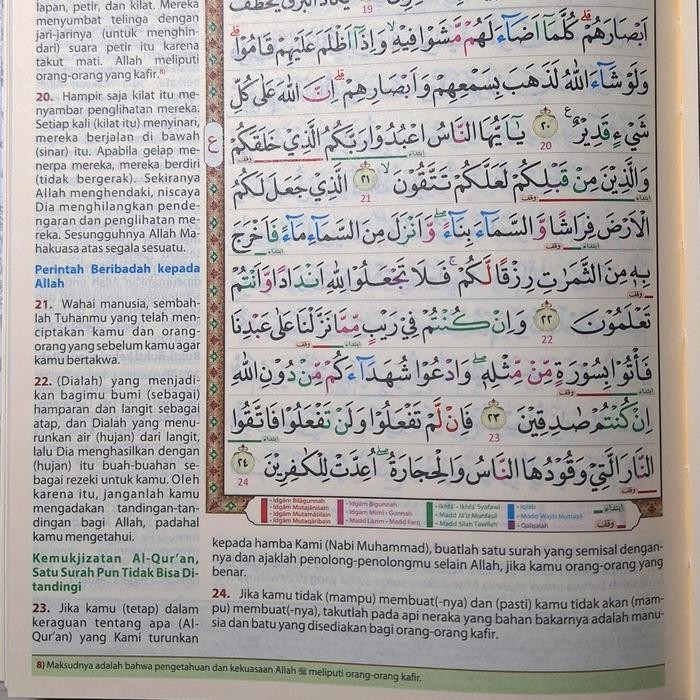 lapan, petir, dan kilat. Mereka
menyumbat telinga dengan
jari-jarinya (untuk menghin-
dari) suara petir itu karena
takut mati. Allah meliputi
orang-orang yang kafir.⁸⁾
20. Hampir saja kilat itu me-
nyambar penglihatan mereka.
Setiap kali (kilat itu) menyinari,
mereka berjalan di bawah
(sinar) itu. Apabila gelap me-
nerpa mereka, mereka berdiri
(tidak bergerak). Sekiranya
Allah menghendaki, niscaya
Dia menghilangkan pende-
ngaran dan penglihatan me-
reka. Sesungguhnya Allah Ma-
hakuasa atas segala sesuatu.
Perintah Beribadah kepada
Allah
21. Wahai manusia, sembah-
lah Tuhanmu yang telah men-
ciptakan kamu dan orang-
orang yang sebelum kamu agar
kamu bertakwa.
22. (Dialah) yang menjadi-
kan bagimu bumi (sebagai)
hamparan dan langit sebagai
atap, dan Dialah yang menu-
runkan air (hujan) dari langit,
lalu Dia menghasilkan dengan
(hujan) itu buah-buahan se-
bagai rezeki untuk kamu. Oleh
karena itu, janganlah kamu
mengadakan tandingan-tan-
dingan bagi Allah, padahal
kamu mengetahui.
Kemukjizatan Al-Qur'an,
Satu Surah Pun Tidak Bisa Di-
tandingi
23. Jika kamu (tetap) dalam
keraguan tentang apa (Al-
Qur'an) yang Kami turunkan
19
اَبْصَارَهُمْ ۗ كُلَّمَآ اَضَاۤءَ لَهُمْ مَّشَوْا فِيْهِ ۙ وَاِذَآ اَظْلَمَ عَلَيْهِمْ قَامُوْا ۗ
وَلَوْ شَاۤءَ اللّٰهُ لَذَهَبَ بِسَمْعِهِمْ وَاَبْصَارِهِمْ ۗ اِنَّ اللّٰهَ عَلٰى كُلِّ
شَيْءٍ قَدِيْرٌ ࣖ ٢٠ يٰٓاَيُّهَا النَّاسُ اعْبُدُوْا رَبَّكُمُ الَّذِيْ خَلَقَكُمْ
20
ع
وَالَّذِيْنَ مِنْ قَبْلِكُمْ لَعَلَّكُمْ تَتَّقُوْنَ ۙ ٢١ الَّذِيْ جَعَلَ لَكُمُ
21
الْاَرْضَ فِرَاشًا وَّالسَّمَاۤءَ بِنَاۤءً ۖ وَّاَنْزَلَ مِنَ السَّمَاۤءِ مَاۤءً فَاَخْرَجَ
بِهٖ مِنَ الثَّمَرٰتِ رِزْقًا لَّكُمْ ۚ فَلَا تَجْعَلُوْا لِلّٰهِ اَنْدَادًا وَّاَنْتُمْ
تَعْلَمُوْنَ ٢٢ وَاِنْ كُنْتُمْ فِيْ رَيْبٍ مِّمَّا نَزَّلْنَا عَلٰى عَبْدِنَا
22
فَأْتُوْا بِسُوْرَةٍ مِّنْ مِّثْلِهٖ ۖ وَادْعُوْا شُهَدَاۤءَكُمْ مِّنْ دُوْنِ اللّٰهِ
اِنْ كُنْتُمْ صٰدِقِيْنَ ٢٣ فَاِنْ لَّمْ تَفْعَلُوْا وَلَنْ تَفْعَلُوْا فَاتَّقُوا
23
النَّارَ الَّتِيْ وَقُوْدُهَا النَّاسُ وَالْحِجَارَةُ ۖ اُعِدَّتْ لِلْكٰفِرِيْنَ ٢٤
24
- Idgām Bilāgunnah
- Idgām Mutajānisain
- Idgām Mutamāṡilain
- Idgām Mutaqāribain
- Idgām Bigunnah
- Idgām Mīmī - Gunnah
- Madd Lāzim - Madd Farq
- Ikhfā' - Ikhfā' Syafawī
- Madd Jā'iz Munfaṣil
- Madd Ṣilah Ṭawīlah
- Iqlāb
- Madd Wajib Muttaṣil
- Qalqalah
ابتداء
وقف
kepada hamba Kami (Nabi Muhammad), buatlah satu surah yang semisal dengan-
nya dan ajaklah penolong-penolongmu selain Allah, jika kamu orang-orang yang
benar.
24. Jika kamu tidak (mampu) membuat(-nya) dan (pasti) kamu tidak akan (mam-
pu) membuat(-nya), takutlah pada api neraka yang bahan bakarnya adalah manu-
sia dan batu yang disediakan bagi orang-orang kafir.
8) Maksudnya adalah bahwa pengetahuan dan kekuasaan Allah ﷻ meliputi orang-orang kafir.